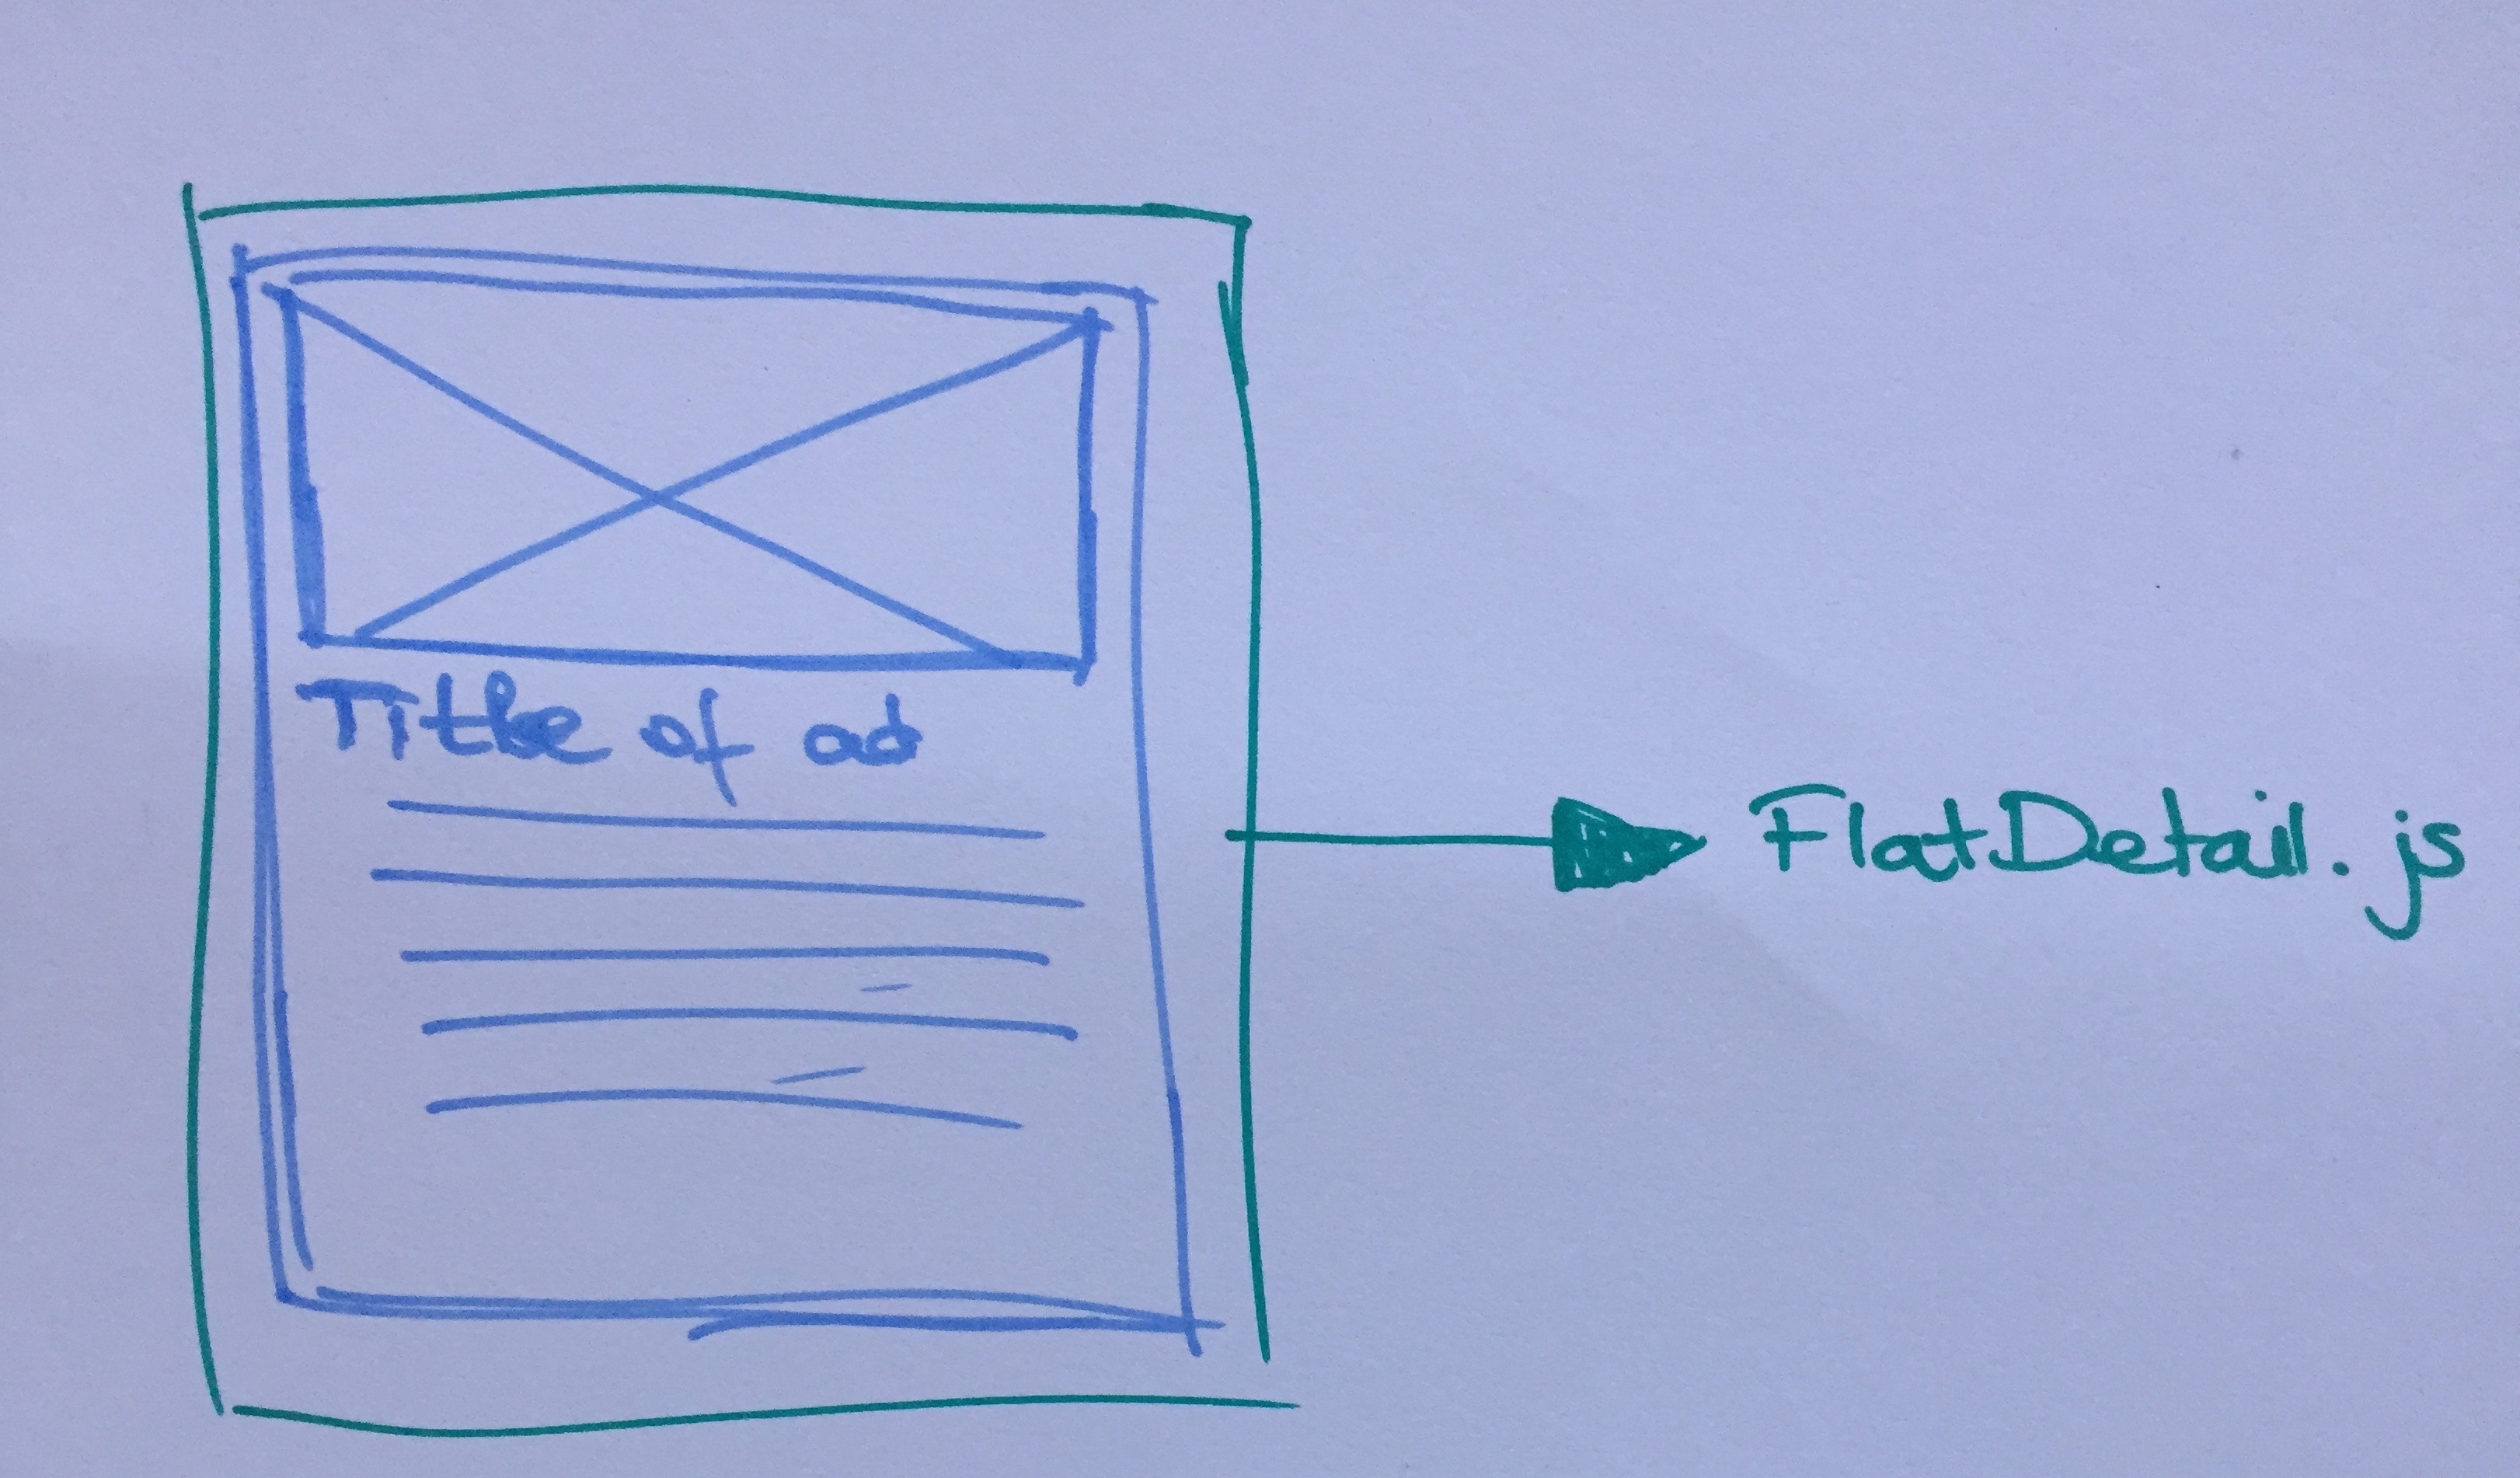 Title of ad
FlatDetail.js